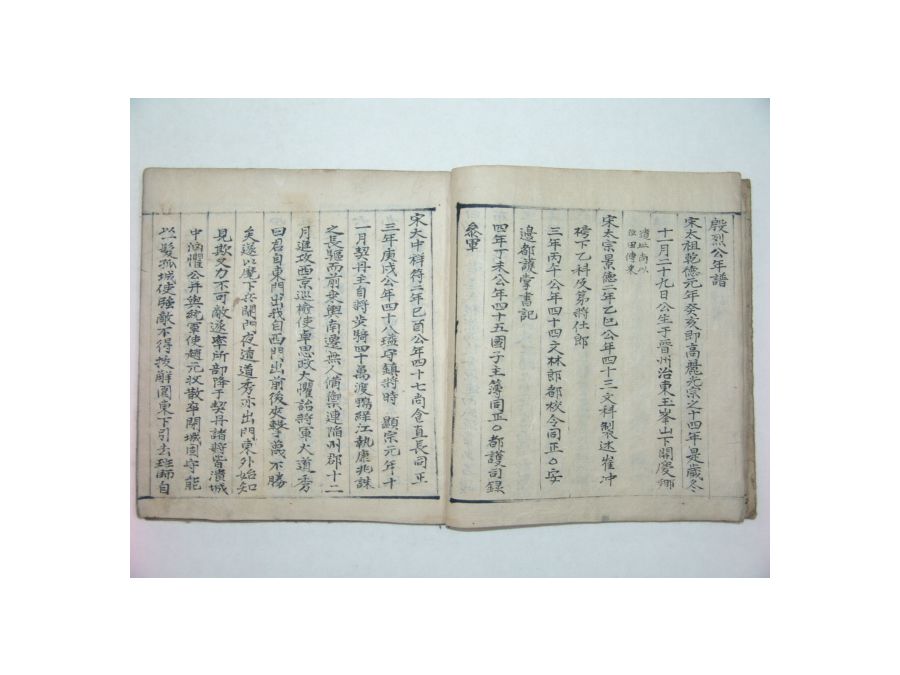 殷烈公年譜
宋太祖乾德元年癸亥即高麗光宗之十四年是歲冬
十一月二十九日公生于晋州治東玉峯山下開慶鄉
遺址尚以
位田傳來
宋太宗景德二年乙巳公年四十三文科製述崔冲
榜下乙科及第將仕郎
三年丙午公年四十四文林郎都校令同正○安
邊都護掌書記
四年丁未公年四十五國子主簿同正○都護司錄
參軍
宋太中祥符二年己酉公年四十七尚食直長同正
三年庚戌公年四十八 守鎮將時 顯宗元年十
一月契丹主自將步騎四十萬渡鴨綠江執康兆誅
之長驅而前乘輿南遷無人備禦連陷州郡十二
月進攻西京巡檢使卓思政大懼詒將軍大道秀
曰君自東門出我自西門出前後夾擊萬不勝
矣遂以麾下兵開門夜遁道秀亦出門東外始知
見欺又力不可敵遂率所部降于契丹諸將皆潰城
中洶懼公并與統軍使趙元收散卒閉城固守能
以一髮孤城使強敵不得拔解圍東下引去班師自